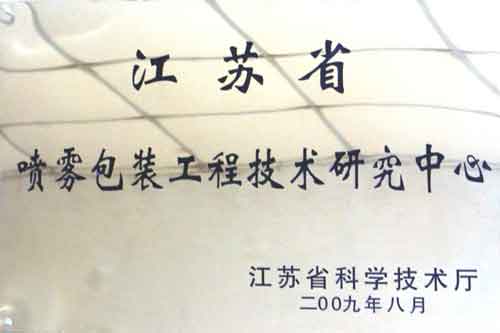 江苏省
喷雾包装工程技术研究中心
江苏省科学技术厅
二00九年八月